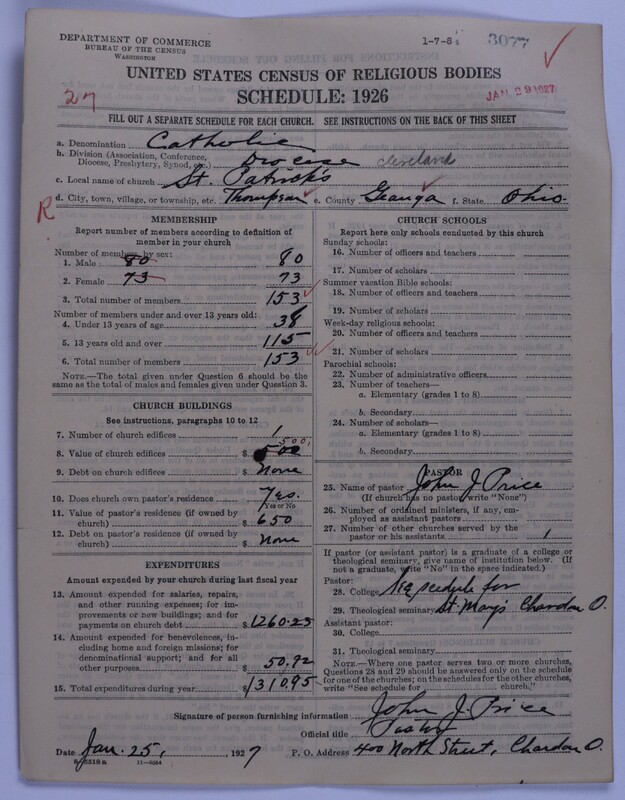 DEPARTMENT OF COMMERCE
BUREAU OF THE CENSUS
WASHINGTON
1-7-8
3077
UNITED STATES CENSUS OF RELIGIOUS BODIES
SCHEDULE: 1926
27
JAN 29 1927
FILL OUT A SEPARATE SCHEDULE FOR EACH CHURCH. SEE INSTRUCTIONS ON THE BACK OF THIS SHEET
a. Denomination Catholic
b. Division (Association, Conference, Diocese, Presbytery, Synod, etc.) Diocese Cleveland
c. Local name of church St. Patrick's
R
d. City, town, village, or township, etc. Thompson e. County Geauga f. State Ohio.
MEMBERSHIP
Report number of members according to definition of
member in your church
Number of members by sex:
1. Male 80 80
2. Female 73 73
3. Total number of members 153
Number of members under and over 13 years old:
4. Under 13 years of age 38
5. 13 years old and over 115
6. Total number of members 153
NOTE.—The total given under Question 6 should be
same as the total of males and females given under Question 3.
CHURCH BUILDINGS
See instructions, paragraphs 10 to 12
7. Number of church edifices 1
8. Value of church edifices $
9. Debt on church edifices $ None
10. Does church own pastor's residence Yes.
Yes or No
11. Value of pastor's residence (if owned by
church) $ 650
12. Debt on pastor's residence (if owned by
church) $ None
EXPENDITURES
Amount expended by your church during last fiscal year
13. Amount expended for salaries, repairs,
and other running expenses; for im-
provements or new buildings; and for
payments on church debt $ 1260.25
14. Amount expended for benevolences, in-
cluding home and foreign missions; for
denominational support; and for all
other purposes $ 50.92
15. Total expenditures during year $ 1310.95
CHURCH SCHOOLS
Report here only schools conducted by this church
Sunday schools:
16. Number of officers and teachers
17. Number of scholars
Summer vacation Bible schools:
18. Number of officers and teachers
19. Number of scholars
Week-day religious schools:
20. Number of officers and teachers
21. Number of scholars
Parochial schools:
22. Number of administrative officers
23. Number of teachers—
a. Elementary (grades 1 to 8)
b. Secondary
24. Number of scholars—
a. Elementary (grades 1 to 8)
b. Secondary
PASTOR
25. Name of pastor John J. Price
(If church has no pastor, write "None")
26. Number of ordained ministers, if any, em-
ployed as assistant pastors
27. Number of other churches served by the
pastor or his assistants 1
If pastor (or assistant pastor) is a graduate of a college or
theological seminary, give name of institution below. (If
not a graduate, write "No" in the space indicated.)
Pastor:
28. College See schedule for
29. Theological seminary St. Mary's Chardon O.
Assistant pastor:
30. College
31. Theological seminary
NOTE.—Where one pastor serves two or more churches,
Questions 28 and 29 should be answered only on the schedule
for one of the churches; on the schedules for the other churches,
write "See schedule for church."
Signature of person furnishing information John J. Price
Official title Pastor
Date Jan. 25, 1927 P. O. Address 400 North Street, Chardon O.
11-6664